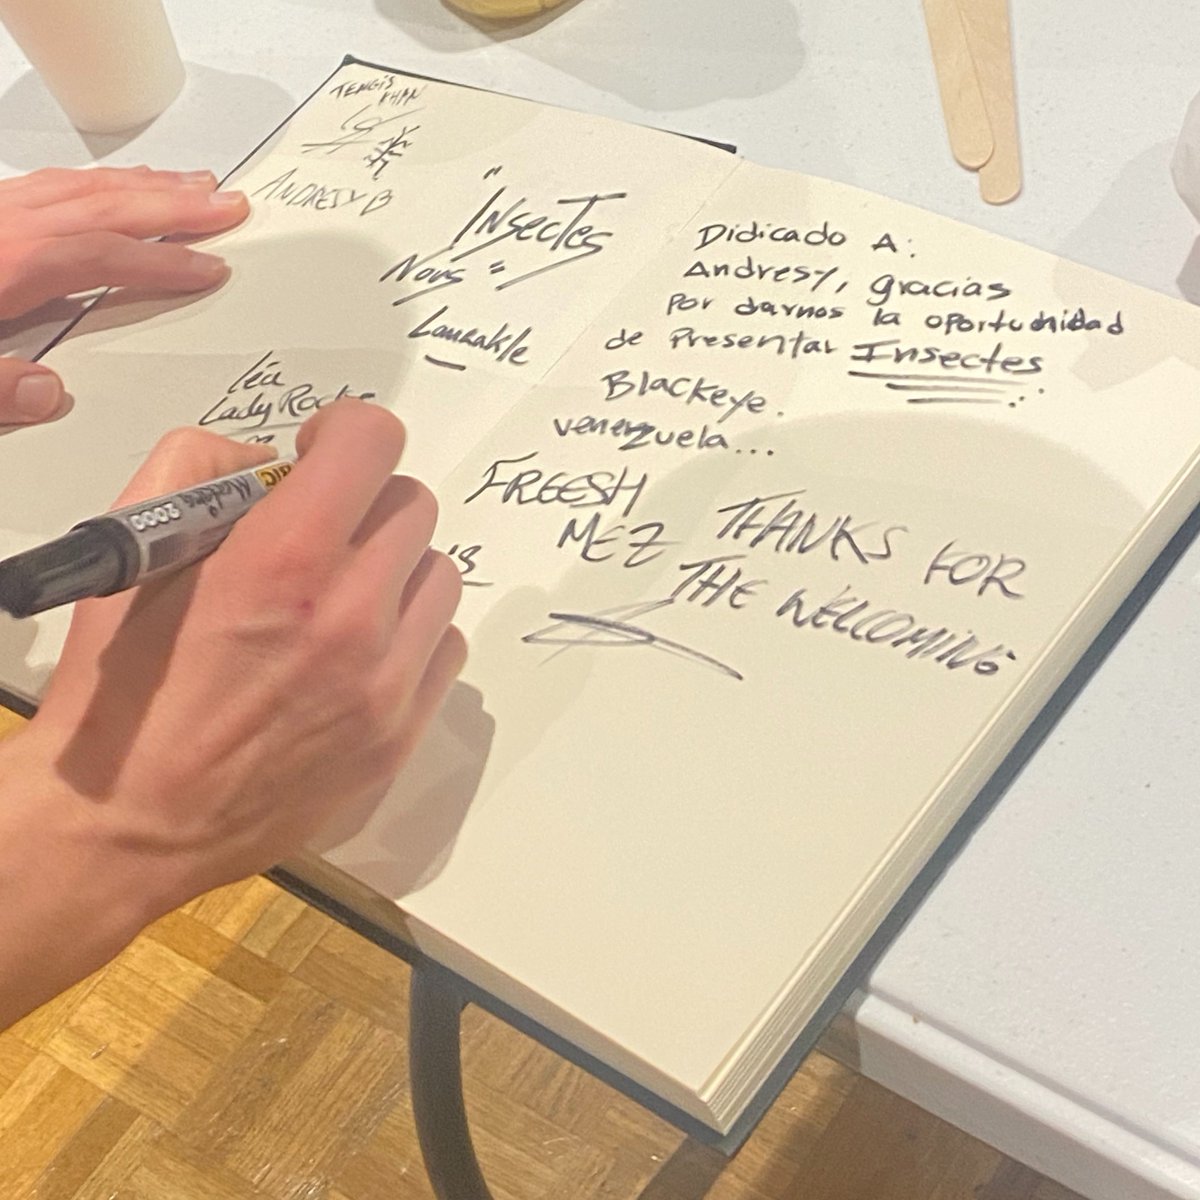 TENGIS
KHAN
ANDRESY B
"INSECTES
NOUS"
Lourakle
léa
Lady Rocks
BIC
Marking 2000
Didicado A:
Andresy, gracias
por darnos la oportunidad
de Presentar Insectes
Blackeye.
venezuela...
FREESH
MEZ
THANKS FOR
THE WELCOMING